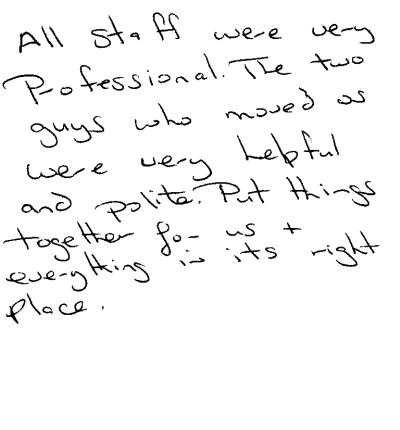 All staff were very
Professional. The two
guys who moved us
were very helpful
and polite. Put things
together for us +
everything in its right
place.